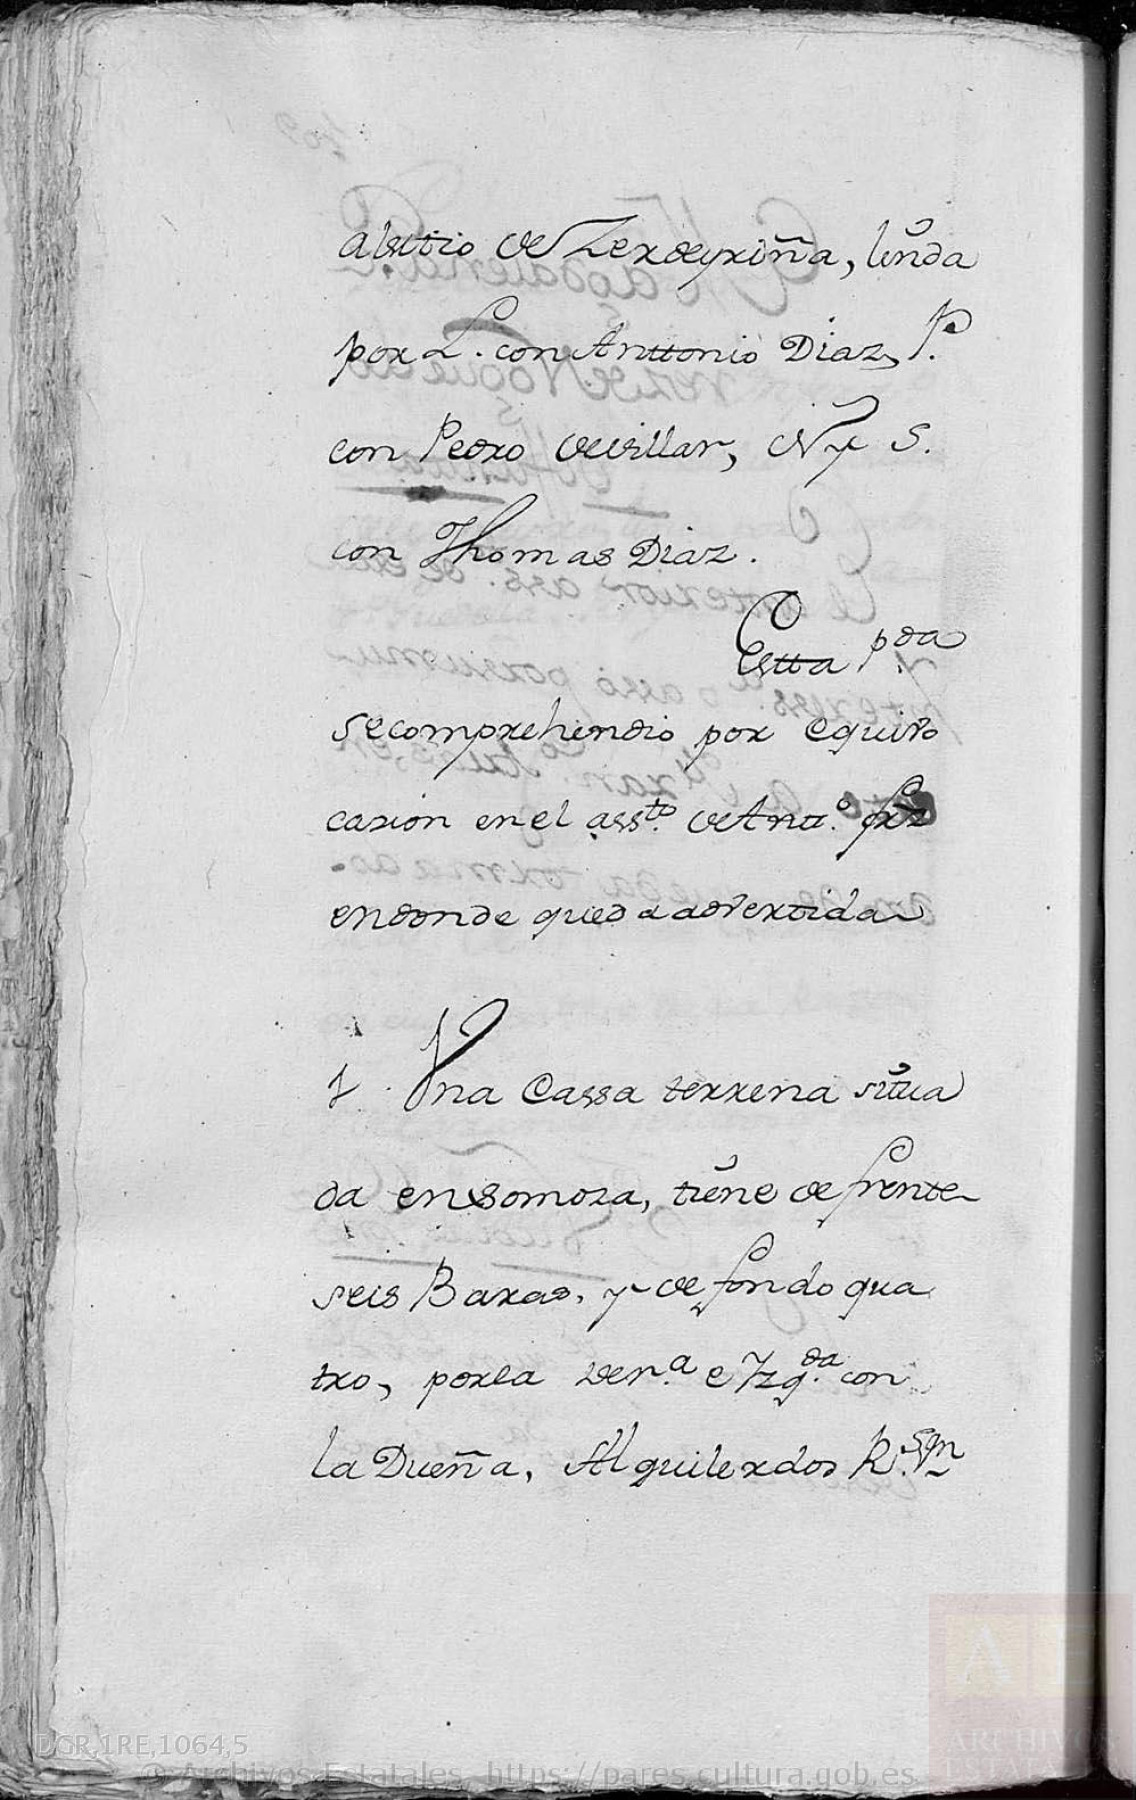 alsitio de Zerdeyriña, linda
por L. con Anttonio Diaz, P.
con Pedro de villar, N y S.
con Thomas Diaz.
Estta p.da
se comprehendio por equibo
cazion en el ass.to de Antt.o frz
en donde queda adbertida
1. Una Cassa terrena situa
da en Somoza, tiene de frente
seis Baras, y de fondo qua
tro, por la der.a e Yzq.da con
la Dueña, Alquiler dos R.s
DGR,1RE,1064,5
© Archivos Estatales, https://pares.cultura.gob.es
AE
ARCHIVOS
ESTATALES